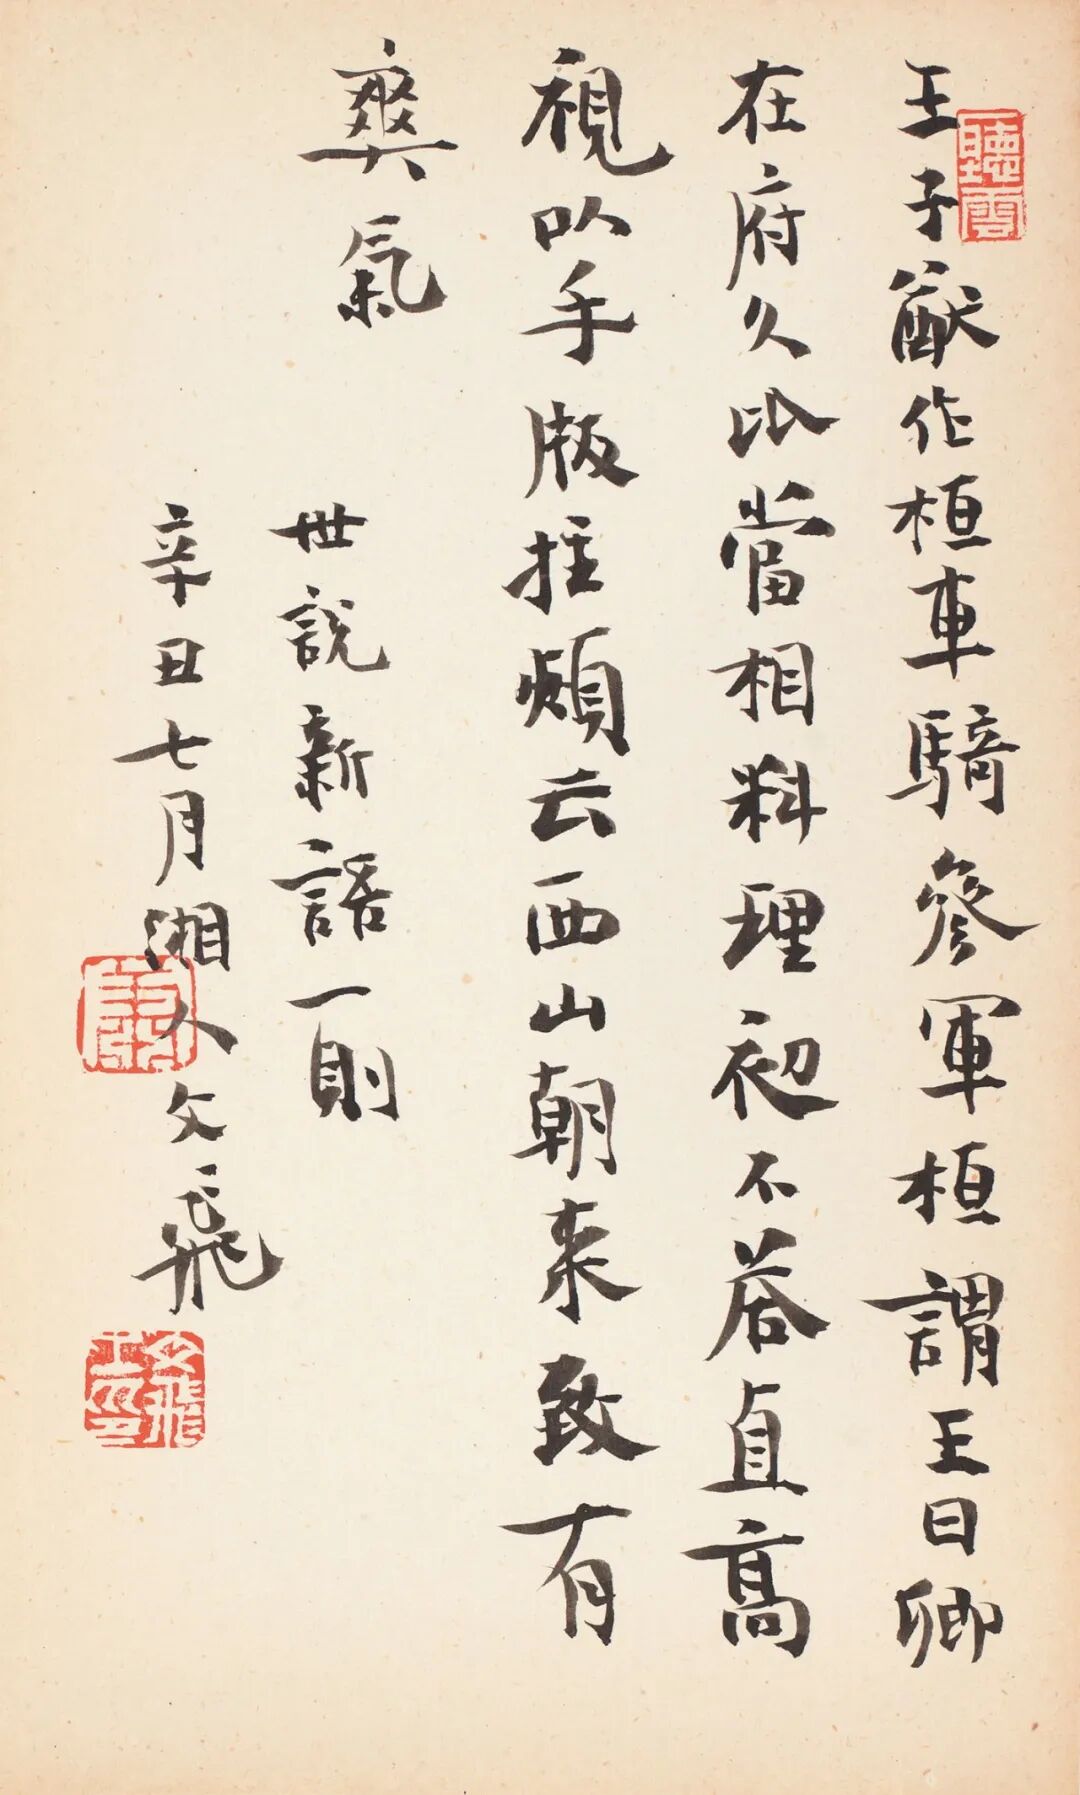 王子猷作桓車騎參軍桓謂王曰卿
在府久比當相料理初不荅直高
視以手版拄頰云西山朝来致有
爽氣
世說新語一則
辛丑七月湘人文飛
聽雲